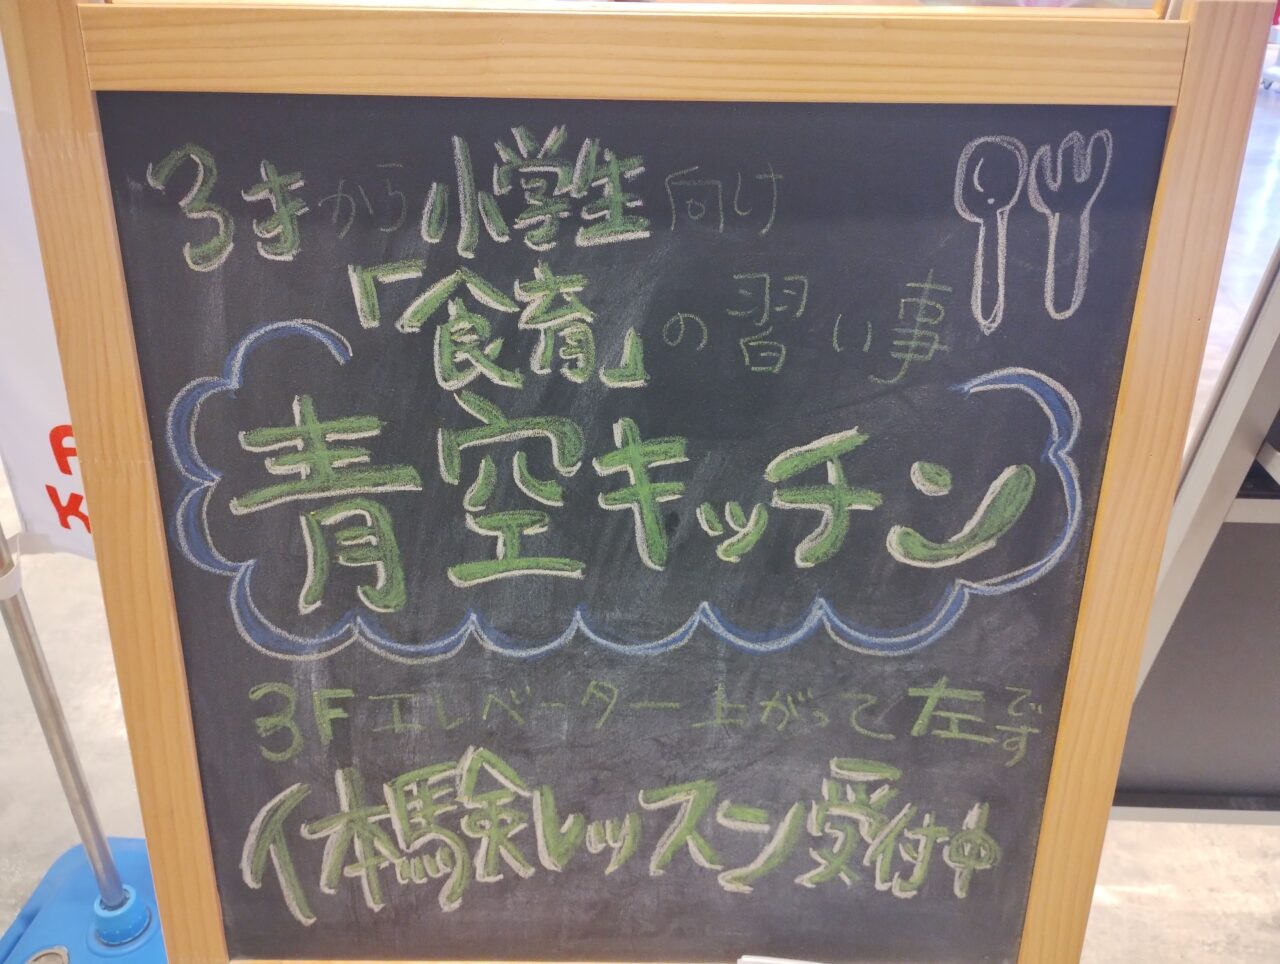 3才から小学生向け
「食育」の習い事
青空キッチン
3Fエレベーター上がって左です
体験レッスン受付中